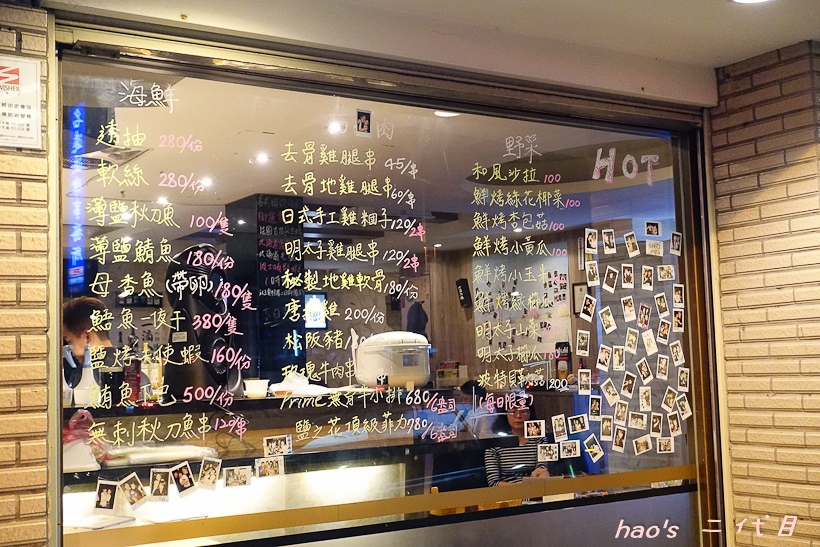 海鮮
透抽 280/份
軟絲 280/份
薄鹽秋刀魚 100/隻
薄鹽鯖魚 180/份
母香魚(帶卵) 180/隻
鯖魚一夜干 380/隻
鹽烤天使蝦 160/份
鮪魚下巴 500/份
無刺秋刀魚串 120/串
肉
去骨雞腿串 45/串
去骨地雞腿串 60/串
日式手工雞棚子 120/2串
明太子雞腿串 120/2串
秘製地雞軟骨 180/份
唐揚雞 200/份
松阪豬
玫瑰牛肉串
Prime無骨牛小排 680/6盎司
鹽之花頂級菲力 780/6盎司
野菜
和風沙拉 100
鮮烤綠花椰菜 100
鮮烤杏包菇 100
鮮烤小黃瓜 100
鮮烤小玉米
鮮烤
明太子山藥
明太子櫛瓜 100
波特貝 200
(每日限量)
HOT
hao's 二代目